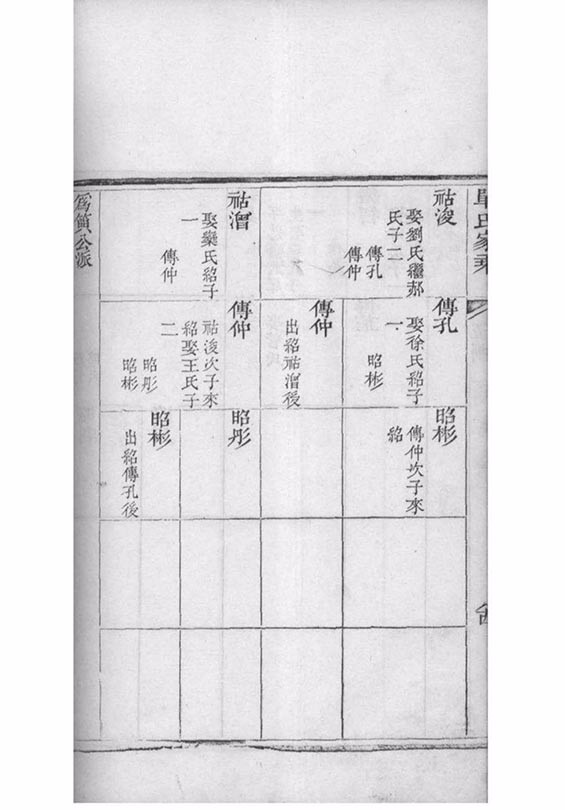 單氏家乘
祜浚
娶劉氏繼郝
氏子二
傳孔
傳仲
傳孔
娶徐氏紹子
一
昭彬
昭彬
傳仲次子來
紹
傳仲
出紹祜澮後
祜澮
娶欒氏紹子
一
傳仲
傳仲
祜浚次子來
紹娶王氏子
二
昭彤
昭彬
昭彤
昭彬
出紹傳孔後
為簡公派